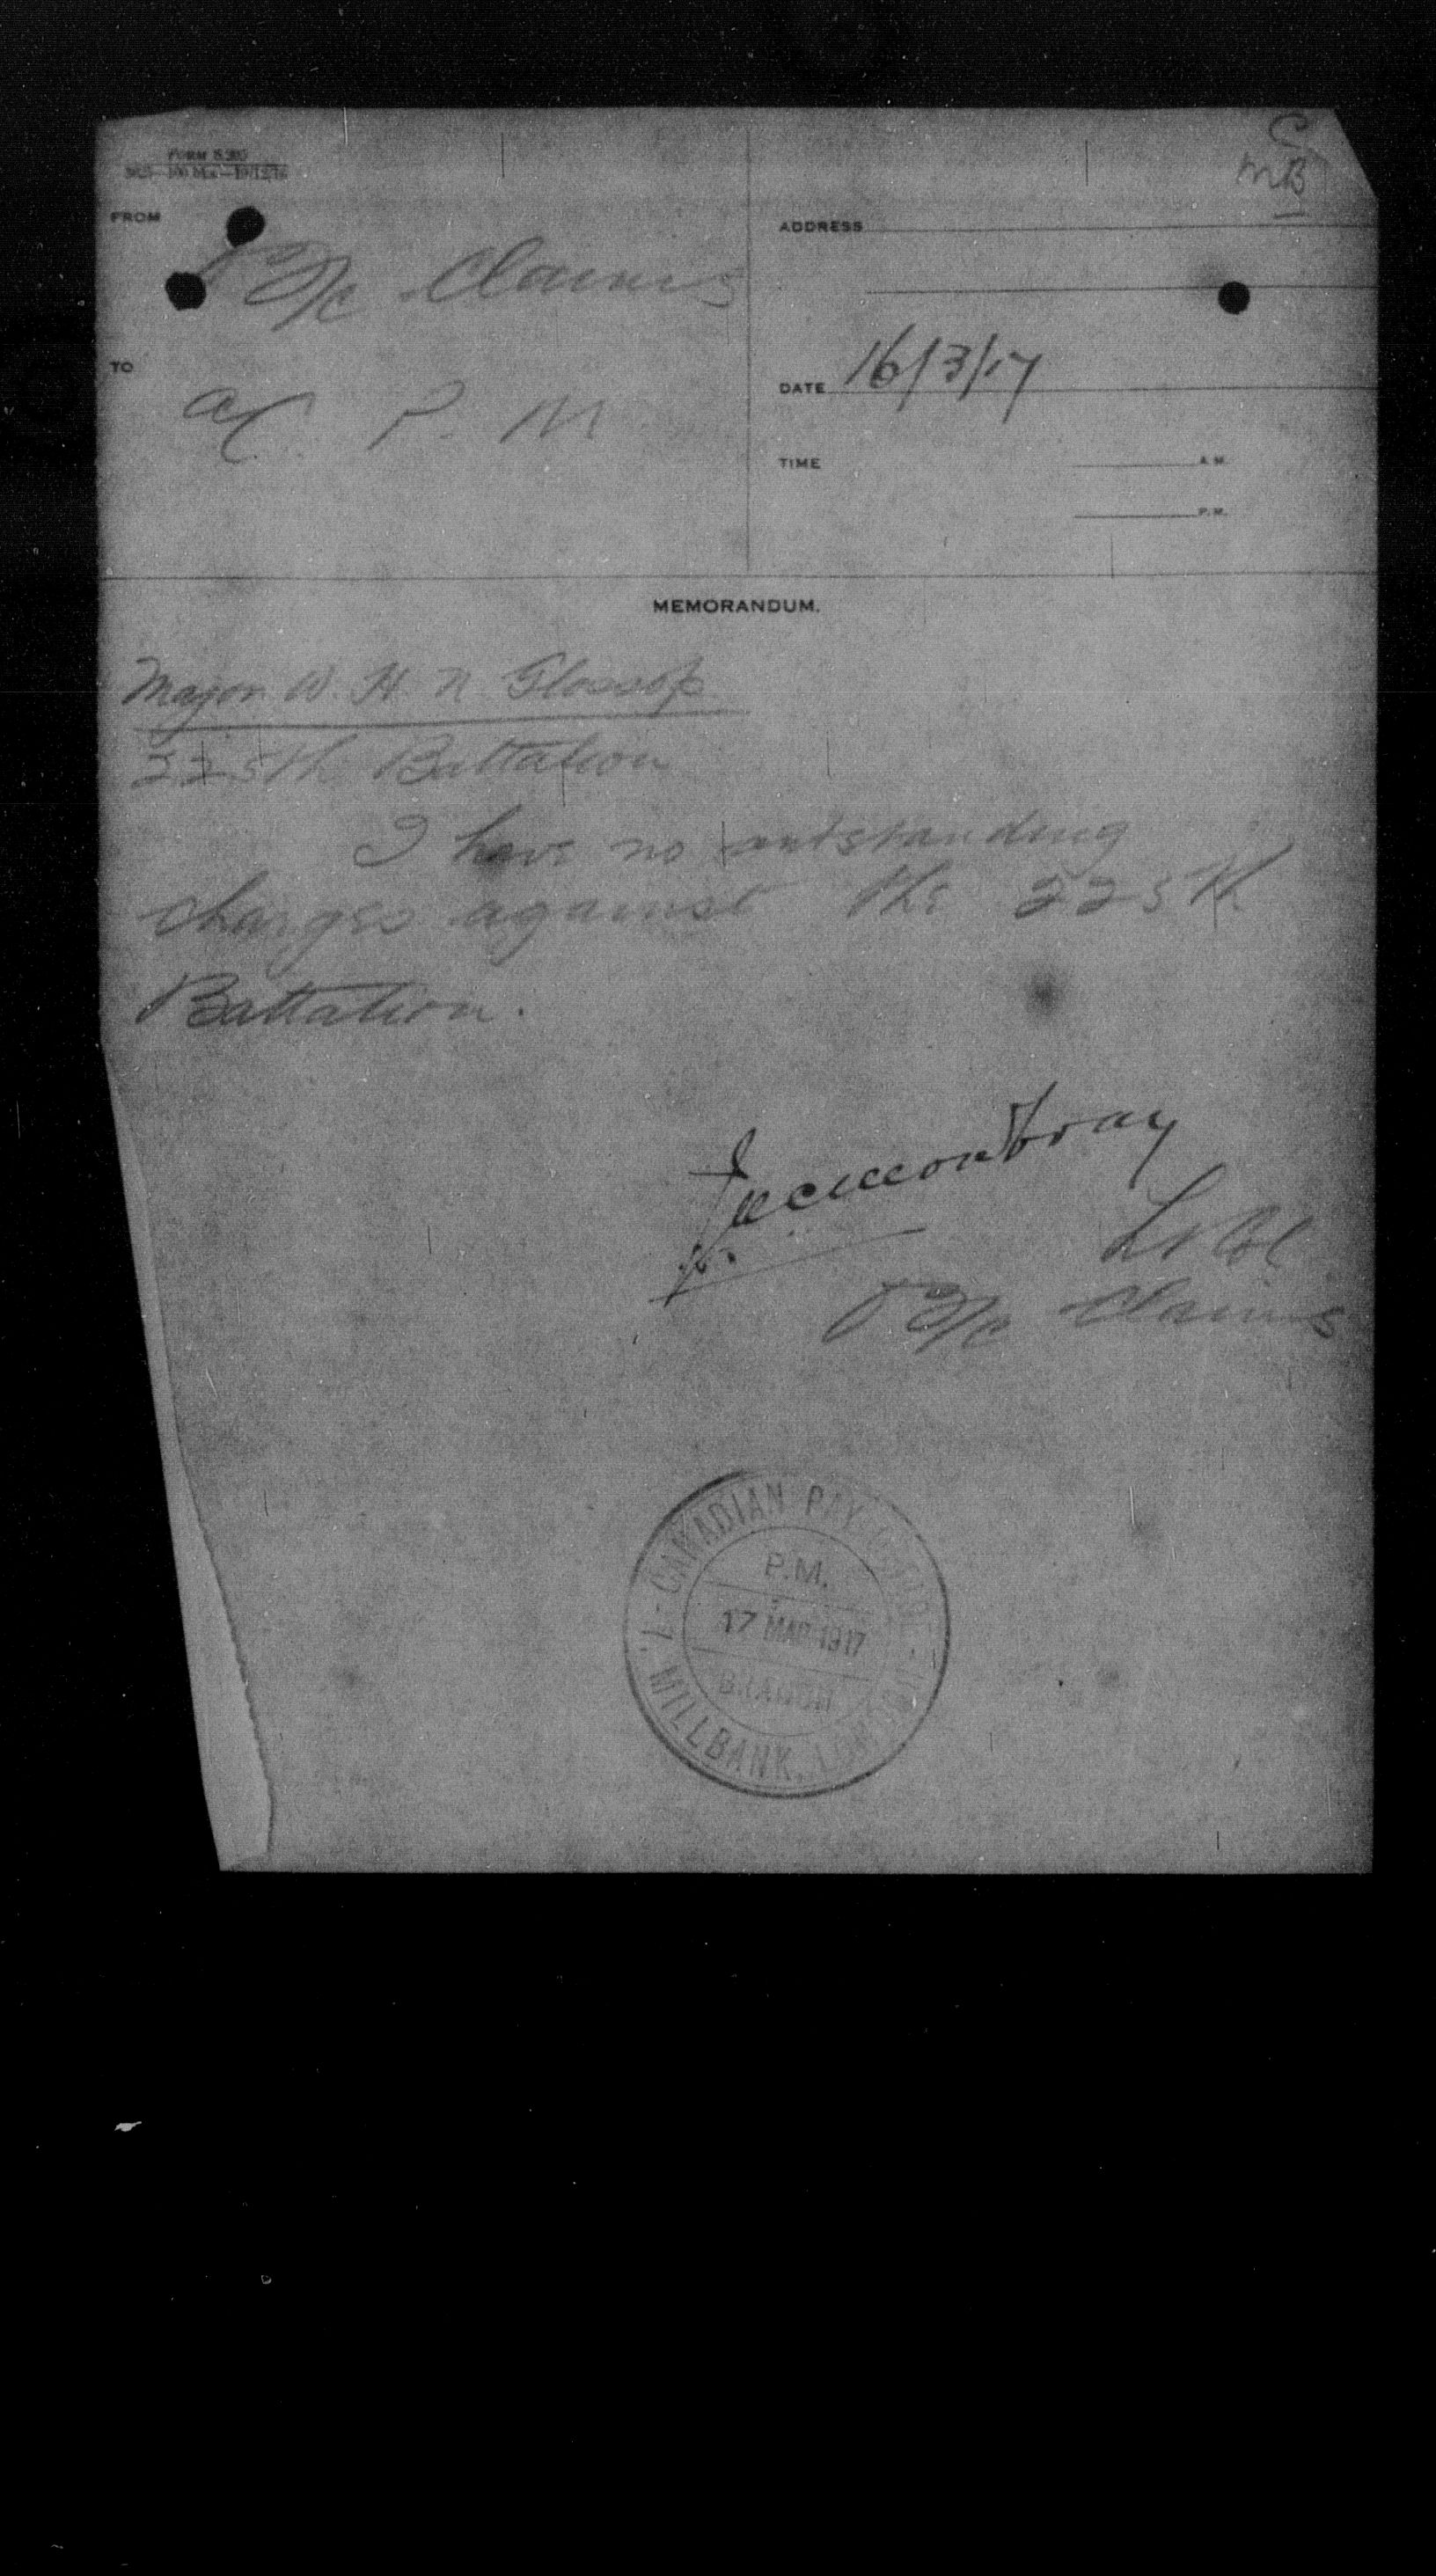 C
MB
FORM 5.
FROM
O i/c Claims
ADDRESS
TO
P. M
DATE 16/3/17
TIME A.M.
P.M.
MEMORANDUM.
Major W. H. N Glossop
225th Battalion
I have no outstanding
charges against the 225th
Battalion.
Lt Col
O i/c Claims
CANADIAN PAY
P.M.
17 MAR 1917
BRANCH
MILLBANK, LONDON